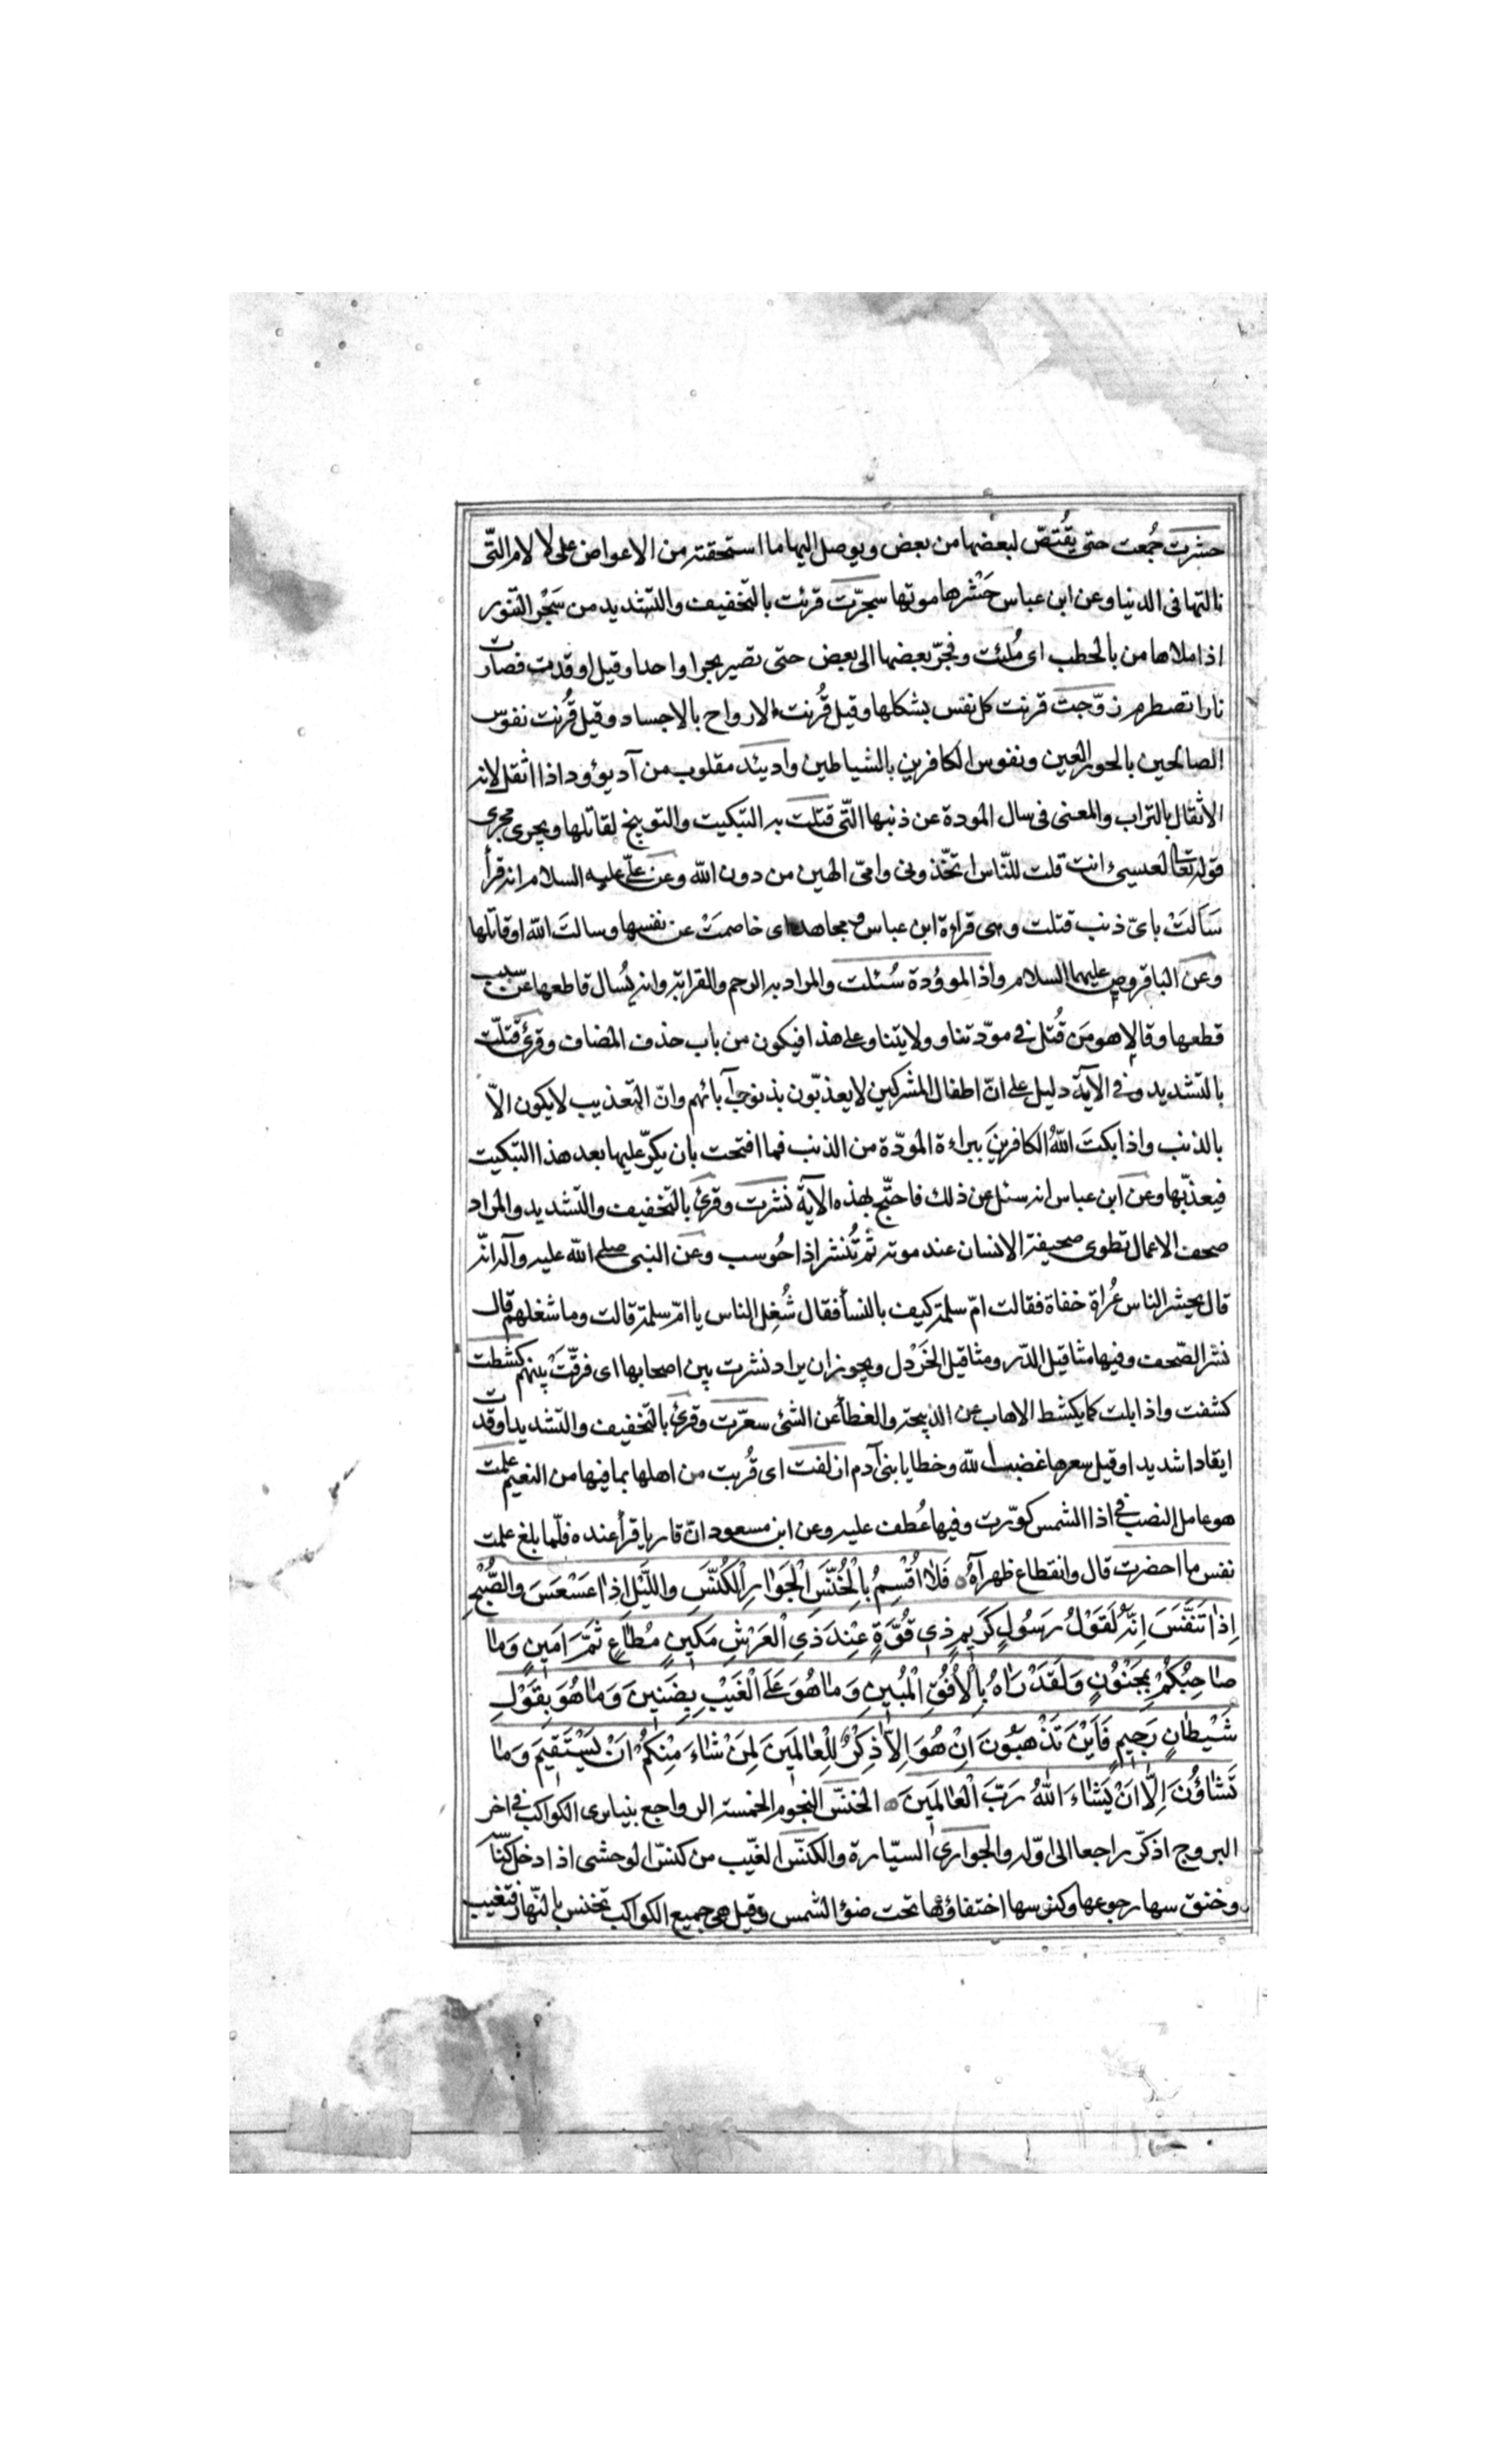 حشرت جُمعت حتى يُقتصّ لبعضها من بعض ويوصل اليها ما استحقته من الاعواض على الالام التّى
نالتها فى الدنيا وعن ابن عباس حَشْرها موتها سجّرت قرئت بالتخفيف والتشديد من سَجْر التنور
اذا ملاها من بالحطب اى مُلئت وفجّر بعضها الى بعض حتى تصير بحرا واحدا وقيل اوقدت فصارت
نارا تصطرم زوّجت قرنت كل نفس بشكلها وقيل قُرنت الارواح بالاجساد وقيل قُرنت نفوس
الصالحين بالحور العين ونفوس الكافرين بالشياطين وادیئد مقلوب من آد يؤود اذا اثقل لانه
الاثقال بالتراب والمعنى فى سال المودة عن ذنبها الّتى قتلت به التبكيت والتوبيخ لقاتلها ويجرى مجرى
قوله تعالى لعيسى ءانت قلت للنّاس اتخّذونى وامّى الهين من دون الله وعن علّى عليه السلام انه قرأ
سَاَلَتْ باىّ ذنب قتلت وهى قراءة ابن عباس و مجاهد اى خاصمَتْ عن نفسها وسالتَ الله او قاتلها
وعن الباقر وص عليهما السلام واذا الموؤدة سُئلت والمراد به الرحم والقرابة وانه يُسال قاطعها عن سبب
قطعها وقالا هو مَن قُتل فى مودّتنا و ولايتنا وعلى هذا فيكون من باب حذف المضاف وقرئ قتّلت
بالتشديد وفى الآية دليل على انّ اطفال المشركين لا يعذّبون بذنوب آبائهم وانّ التعذيب لا يكون الاّ
بالذنب واذا بكتَ اللهُ الكافرينَ ببراءة المودّة من الذنب فما افتحت بان يكرّ عليها بعد هذا التبكيت
فيعذّبها وعن ابن عباس انه سئل عن ذلك فاحتّج بهذه الآية نشرت وقرئ بالتخفيف والتشديد والمراد
صحف الاعمال تطوى صحيفة الانسان عند موته ثم تُنشر اذا حُوسب وعن النبى صلى الله عليه وآله انّه
قال يحشر الناس عُراة خفاة فقالت امّ سلمة كيف بالنسأ فقال شُغِل الناس يا امّ سلمة قالت وما شغلهم قال
نشر الصّحف وفيها مثاقيل الذّر ومثاقيل الخَرْدل ويجوز ان يراد نشرت بين اصحابها اى فرقّت بينهم كشطت
كشفت واذابلت كما يكشط الاهاب عن الذبيحة والغطأ عن الشئ سعّرت وقرئ بالتخفيف والتشديد اوقدت
ايقادا شديدا وقيل سعرها غضب الله وخطايا بنى آدم ازلفت اى قُربت من اهلها بما فيها من النعيم علمت
هو عامل النصب فى اذا الشمس كوّرت وفيها عُطف عليه وعن ابن مسعود انّ قاريا قرأ عنده فلّما بلغ علمت
نفس ما احضرت قال وانقطاع ظهرآهْ فَلاٰ اُقْسِمُ بِالْخُنَّسِ الْجَوٰارِ الْكُنَّسِ واللَّيْلِ اِذٰا عَسْعَسَ والصُّبْحِ
اِذٰا تَنَفَّسَ اِنَّهُ لَقَوْلُ رَسُولٍ كَرٖيمٍ ذٖي قُوَّةٍ عِنْدَ ذِي الْعَرْشِ مَكٖينٍ مُطٰاعٍ ثَمَّ اَمٖينٍ وَمٰا
صٰاحِبُكُمْ بِمَجْنُونٍ وَلَقَدْ رَاٰهُ بِالْاُفُقِ الْمُبٖينِ وَمٰا هُوَ عَلَى الْغَيْبِ بِضَنٖينٍ وَمٰا هُوَ بِقَوْلِ
شَيْطٰانٍ رَجٖيمٍ فَاَيْنَ تَذْهَبُونَ اِنْ هُوَ اِلاّٰ ذِكْرٌ لِلْعٰالَمٖينَ لِمَنْ شٰاءَ مِنْكُمْ اَنْ يَسْتَقٖيمَ وَمٰا
تَشٰاؤُنَ اِلّٰا اَنْ يَشٰاءَ اللهُ رَبُّ الْعٰالَمٖينَ الخنسّ النجوم الخمسة الرواجع بنيا يرى الكواكب فى اخر
البروج اذ كرّ راجعا الى اوّله والجوارى السيّارة والكنّس الغيّب من كنسّ الوحشى اذا دخل كنّاسه
وخنوسها رجوعها وكنوسها اختفاؤها تحت ضؤ الشمس وقيل هى جميع الكواكب تخنس بالنّهار فتغيب